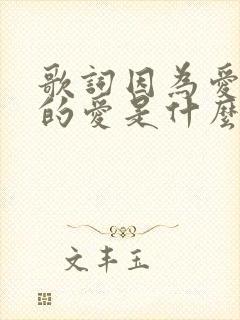 歌詞因為愛
的愛是什麼
文丰玉